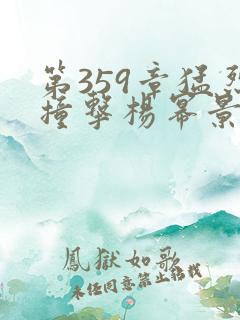 第359章猛烈
撞撃楊冪景
鳳獄如歌
未任同意禁止轉載